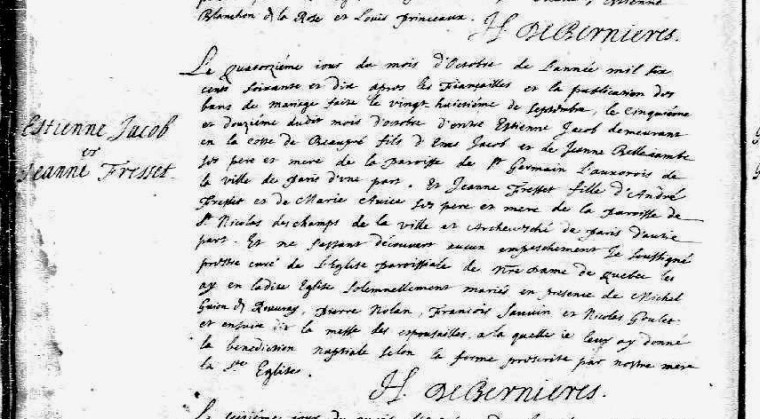 Blanchon & la Rose et Louis princeaux.
H. DeBernieres.
Estienne Jacob
et
Jeanne Fresset
Le quatorziéme jour du mois d'Octobre de l'année mil six
cents soixante et dix apres les fiançailles et la publication des
bans de mariage faite le vingt-huictiéme de septembre, le cinquiéme
et douziéme dudit mois d'octobre d'entre Estienne Jacob demeurant
en la coste de Beaupré fils d'Enas Jacob et de Jeanne Bellejambe
ses pere et mere de la paroisse de St Germain l'auxerois de
la ville de paris d'une part. Et Jeanne Fresset fille d'André
Fresset et de Marie Avice ses pere et mere de la paroisse de
St Nicolas des champs de la ville et Archevesché de paris d'autre
part. Et ne s'estant découvert aucun empeschement Je soussigné
prestre curé de l'Eglise paroissiale de Nre Dame de Quebec les
ay en ladite Eglise solemnellement mariés en presence de Michel
Guion de Rouvray, pierre Nolan, François Sauvin et Nicolas Goulet
et ensuite dit la messe des espousailles, a laquelle je leur ay donné
la benediction nuptiale selon la forme prescrite par nostre mere
la Ste Eglise.
H. DeBernieres.